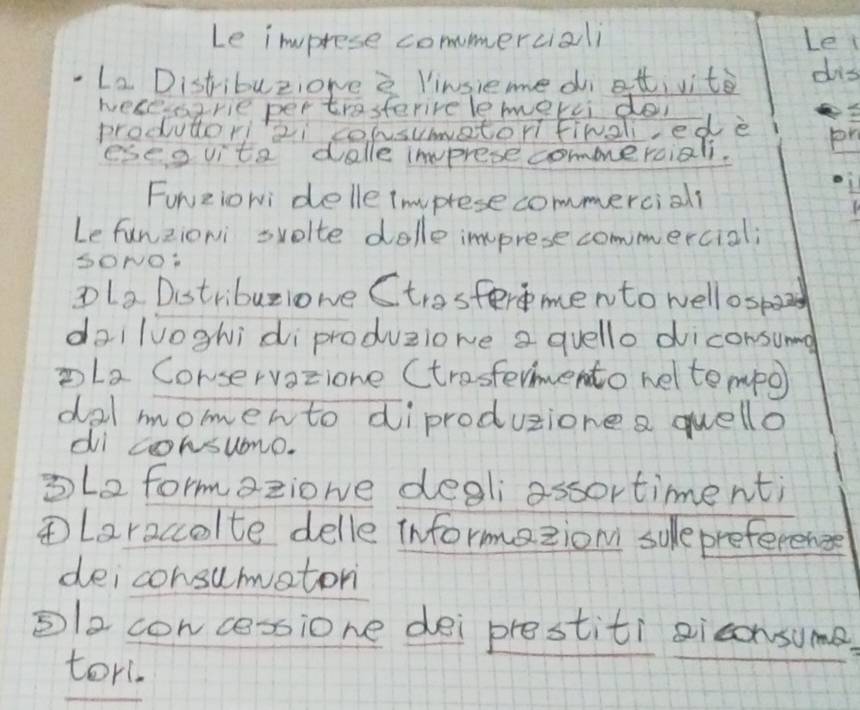 Le imprese commerciali
• La Distribuzione è l'insieme di attività
necessarie per trasferire le merci dai
produttori ai consumatori finali, ed è
eseguita dalle imprese commerciali.
Funzioni delle imprese commerciali
Le funzioni svolte dalle imprese commerciali
sono:
1) La Distribuzione (trasferimento nello spazio)
dai luoghi di produzione a quello di consumo
2) La Conservazione (trasferimento nel tempo)
dal momento di produzione a quello
di consumo.
3) La formazione degli assortimenti
4) La raccolte delle informazioni sulle preferenze
dei consumatori
5) la concessione dei prestiti ai consuma-
tori.
Le
dis
pr